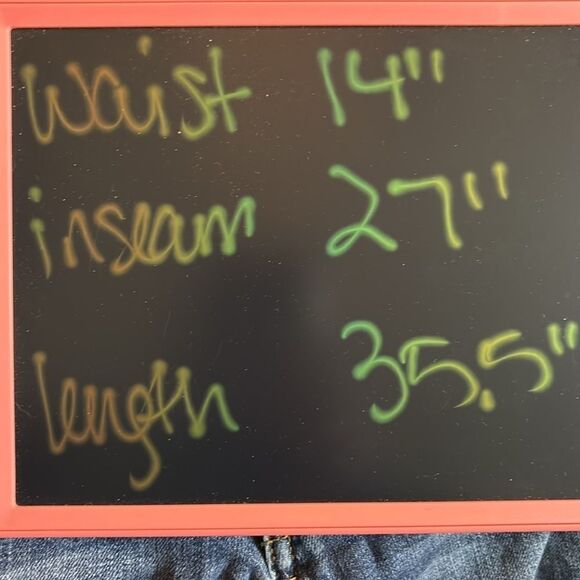 Waist 14"
inseam 27"
length 35.5"